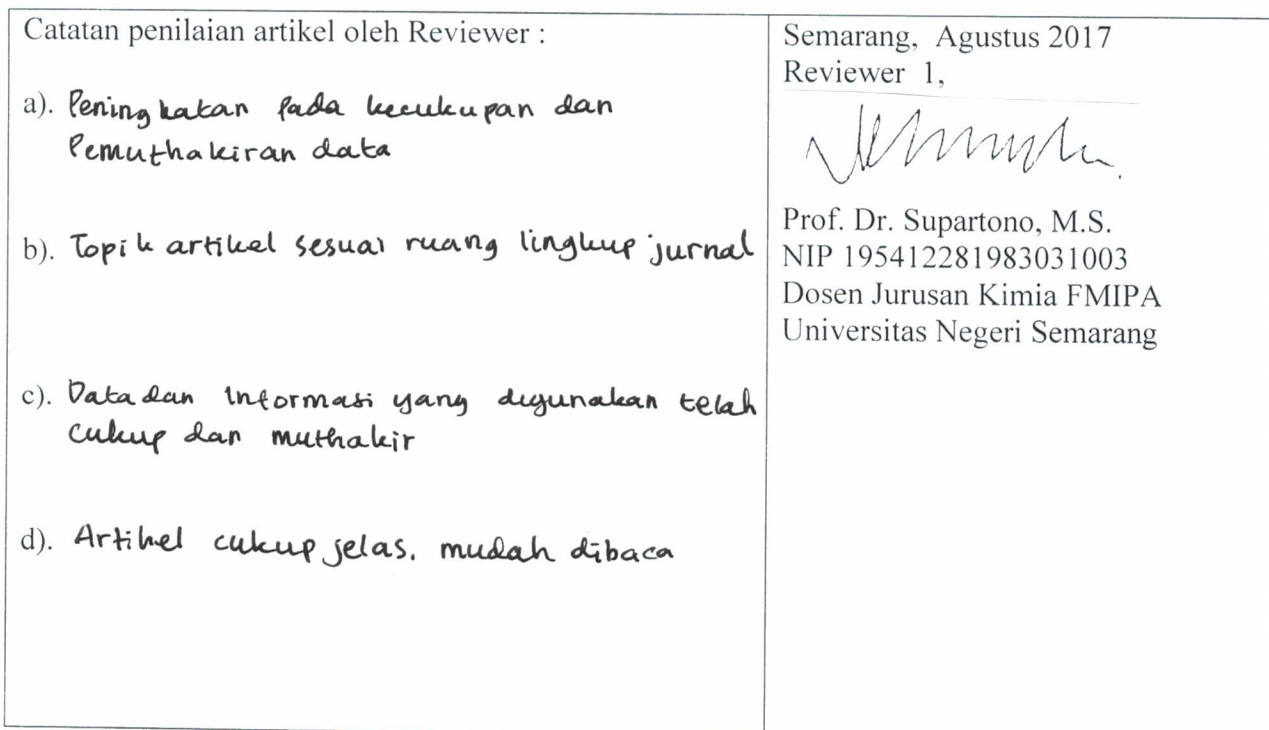 Catatan penilaian artikel oleh Reviewer :
a). Peningkatan pada kecukupan dan
Pemuthakiran data
b). Topik artikel sesuai ruang lingkup jurnal
c). Data dan informasi yang digunakan telah
cukup dan muthakir
d). Artikel cukup jelas. mudah dibaca
Semarang, Agustus 2017
Reviewer 1,
Prof. Dr. Supartono, M.S.
NIP 195412281983031003
Dosen Jurusan Kimia FMIPA
Universitas Negeri Semarang